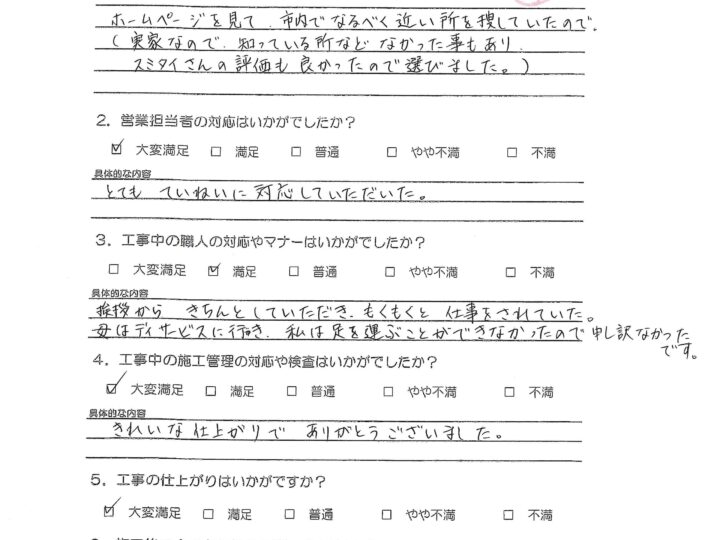 ホームページを見て、市内でなるべく近い所を捜していたので、
(実家なので、知っている所など なかった事もあり、
スミタイさんの評価も良かったので選びました。)
2. 営業担当者の対応はいかがでしたか?
☑ 大変満足 □ 満足 □ 普通 □ やや不満 □ 不満
具体的な内容
とても ていねいに 対応していただいた。
3. 工事中の職人の対応やマナーはいかがでしたか?
□ 大変満足 ☑ 満足 □ 普通 □ やや不満 □ 不満
具体的な内容
挨拶から きちんとしていただき、もくもくと 仕事をされていた。
母はデイサービスに行き、私は足を運ぶことができなかったので申し訳なかった
です。
4. 工事中の施工管理の対応や検査はいかがでしたか?
☑ 大変満足 □ 満足 □ 普通 □ やや不満 □ 不満
具体的な内容
きれいな仕上がりで ありがとうございました。
5. 工事の仕上がりはいかがですか?
☑ 大変満足 □ 満足 □ 普通 □ やや不満 □ 不満